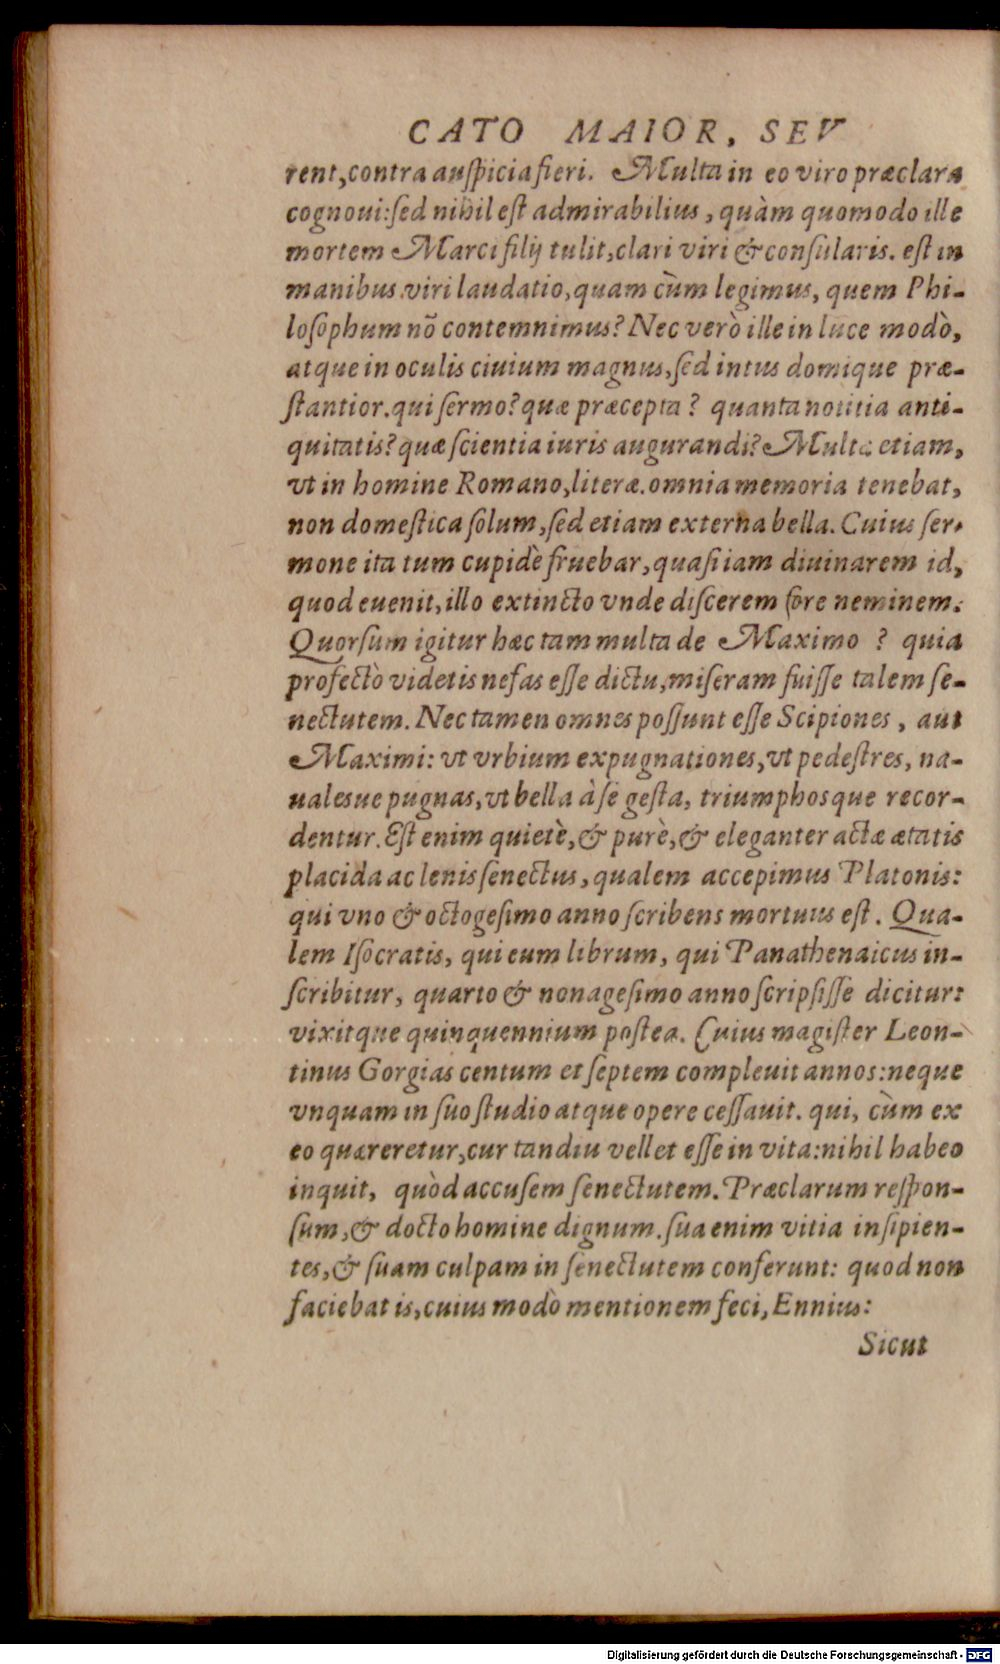 CATO MAIOR, SEV
rent,contra auſpicia fieri. Multa in eo viro præclara
cognoui:ſed nihil eſt admirabilius, quàm quomodo ille
mortem Marci filij tulit,clari viri & conſularis. eſt in
manibus viri laudatio,quam cùm legimus, quem Phi-
loſophum nõ contemnimus? Nec verò ille in luce modò,
atque in oculis ciuium magnus,ſed intus domique præ-
ſtantior.qui ſermo? quæ præcepta? quanta notitia anti-
quitatis? quæ ſcientia iuris augurandi? Multæ etiam,
vt in homine Romano,literæ.omnia memoria tenebat,
non domeſtica ſolum,ſed etiam externa bella. Cuius ſer-
mone ita tum cupidè fruebar,quaſi iam diuinarem id,
quod euenit,illo extincto vnde diſcerem fore neminem.
Quorſum igitur hæc tam multa de Maximo ? quia
profectò videtis nefas eſſe dictu,miſeram fuiſſe talem ſe-
nectutem. Nec tamen omnes poſſunt eſſe Scipiones, aut
Maximi: vt vrbium expugnationes,vt pedeſtres, na-
ualesue pugnas,vt bella à ſe geſta, triumphosque recor-
dentur. Eſt enim quietè,& purè,& eleganter actæ ætatis
placida ac lenis ſenectus,qualem accepimus Platonis:
qui vno & octogeſimo anno ſcribens mortuus eſt. Qua-
lem Iſocratis, qui eum librum, qui Panathenaicus in-
ſcribitur, quarto & nonageſimo anno ſcripſiſſe dicitur:
vixitque quinquennium poſtea. Cuius magiſter Leon-
tinus Gorgias centum et ſeptem compleuit annos:neque
vnquam in ſuo ſtudio atque opere ceſſauit. qui, cùm ex
eo quæreretur,cur tandiu vellet eſſe in vita:nihil habeo
inquit, quòd accuſem ſenectutem. Præclarum reſpon-
ſum,& docto homine dignum. ſua enim vitia inſipien-
tes,& ſuam culpam in ſenectutem conferunt: quod non
faciebat is,cuius modò mentionem feci, Ennius:
Sicut
Digitalisierung gefördert durch die Deutsche Forschungsgemeinschaft - DFG